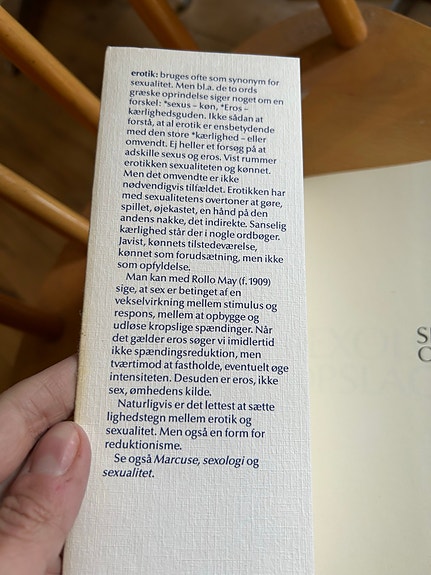 erotik: bruges ofte som synonym for
sexualitet. Men bl.a. de to ords
græske oprindelse siger noget om en
forskel: *sexus – køn, *Eros –
kærlighedsguden. Ikke sådan at
forstå, at al erotik er ensbetydende
med den store *kærlighed – eller
omvendt. Ej heller et forsøg på at
adskille sexus og eros. Vist rummer
erotikken sexualiteten og kønnet.
Men det omvendte er ikke
nødvendigvis tilfældet. Erotikken har
med sexualitetens overtoner at gøre,
spillet, øjekastet, en hånd på den
andens nakke, det indirekte. Sanselig
kærlighed står der i nogle ordbøger.
Javist, kønnets tilstedeværelse,
kønnet som forudsætning, men ikke
som opfyldelse.
Man kan med Rollo May (f. 1909)
sige, at sex er betinget af en
vekselvirkning mellem stimulus og
respons, mellem at opbygge og
udløse kropslige spændinger. Når
det gælder eros søger vi imidlertid
ikke spændingsreduktion, men
tværtimod at fastholde, eventuelt øge
intensiteten. Desuden er eros, ikke
sex, ømhedens kilde.
Naturligvis er det lettest at sætte
lighedstegn mellem erotik og
sexualitet. Men også en form for
reduktionisme.
Se også Marcuse, sexologi og
sexualitet.